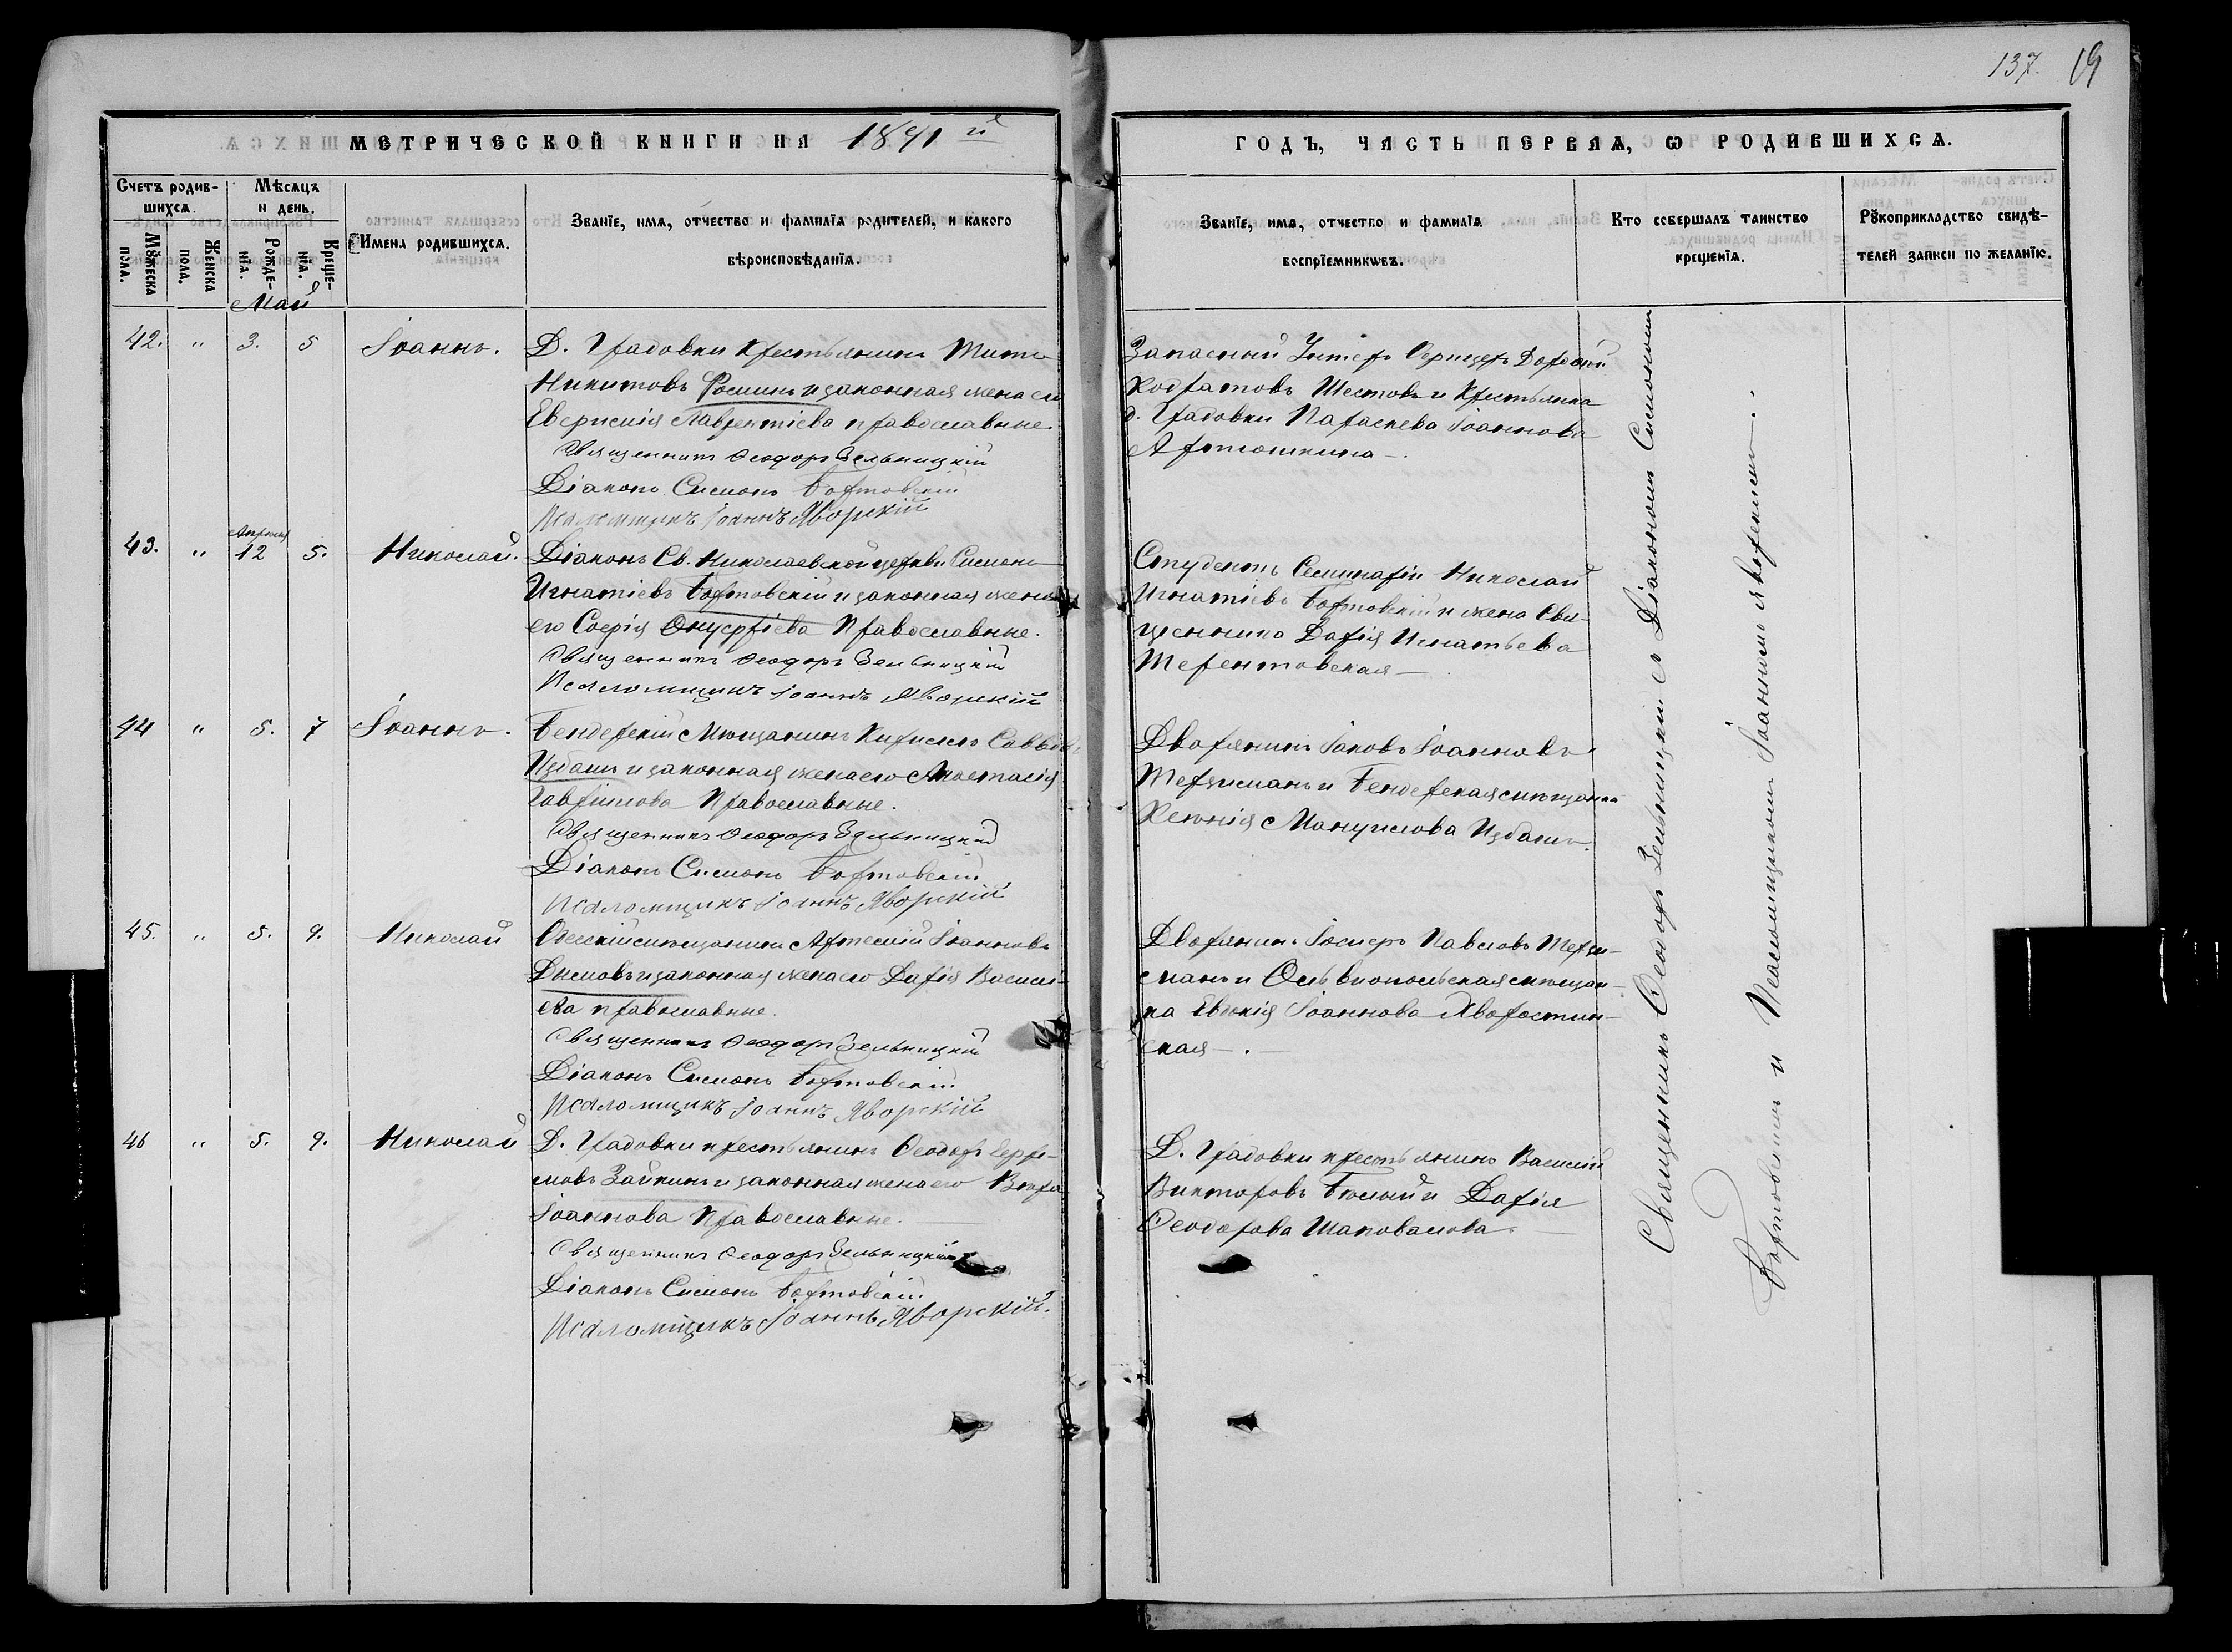 137. 19
МЕТРИЧЕСКОЙ КНИГИ НА 1891 й
ГОДЪ, ЧАСТЬ ПЕРВАѦ, Ѡ РОДИВШИХСѦ.
Счетъ родив-
шихсѧ.
Мѣсяцъ
и день.
Мꙋжеска
пола.
Женска
пола.
Рожде-
нїѧ.
Креще-
нїѧ.
Имена родившихсѧ.
Званїе, имѧ, отчество и фамилїѧ родителей, и какого
вѣроисповѣданїѧ.
Званїе, имѧ, отчество и фамилїѧ
воспрїемникѡвъ.
Кто совершалъ таинство
крещенїѧ.
Рꙋкоприкладство свидѣ-
телей записи по желанїю.
Май
42. " 3. 5 Іоаннъ.
Д. Градовки крестьянинъ Титъ
Никитовъ Фоминъ и законная жена его
Евфимія Лаврентіева православные.
Священникъ Ѳеодоръ Зельницкій
Діаконъ Симонъ Бортовскій
Псаломщикъ Іоаннъ Яворскій
Запасный Унтеръ Офицеръ
Кодратовъ Шестовъ и Крестьянка
д. Градовки Параскева Іоаннова
Артюшкина.
43. " Апрѣля 12 5. Николай.
Діаконъ Св. Николаевской церкви Симонъ
Игнатіевъ Бортовскій и законная жена
его Софія Онуфріева Православные.
Священникъ Ѳеодоръ Зельницкій
Псаломщикъ Іоаннъ Яворскій
Студентъ Семинаріи Николай
Игнатіевъ Бортовскій и жена Свя-
щенника Дарія Игнатьева
Терентовская
44 " 5. 7 Іоаннъ.
Бендерскій Мѣщанинъ Кириллъ Саввовъ
Избашъ и законная жена его Анастасія
Гавріилова Православные.
Священникъ Ѳеодоръ Зельницкій
Діаконъ Симонъ Бортовскій
Псаломщикъ Іоаннъ Яворскій
Дворянинъ Іаковъ Іоанновъ
Терзиманъ и Бендерская мѣщанка
Ксенія Мануилова Избашъ.
45. " 5. 9. Николай
Одесскій мѣщанинъ Артемій Іоанновъ
Дымовъ и законная жена его Дарія Василі-
ева православные.
Священникъ Ѳеодоръ Зельницкій
Діаконъ Симонъ Бортовскій
Псаломщикъ Іоаннъ Яворскій
Дворянинъ Іосифъ Павловъ Терзи-
манъ и Ольвіопольская мѣщан-
ка Евдокія Іоаннова Хворостин-
ская.
46 " 5. 9. Николай
Д. Градовки крестьянинъ Ѳеодоръ Ефре-
мовъ Зайкинъ и законная жена его Вѣра
Іоаннова Православные.
Священникъ Ѳеодоръ Зельницкій
Діаконъ Симонъ Бортовскій
Псаломщикъ Іоаннъ Яворскій.
Д. Градовки крестьянинъ Василій
Викторовъ Бѣлый и Дарія
Ѳеодорова Шаповалова.
Священникъ Ѳеодоръ Зельницкій съ Діакономъ Симономъ
Бортовскимъ и Псаломщикомъ Іоанномъ Яворскимъ.